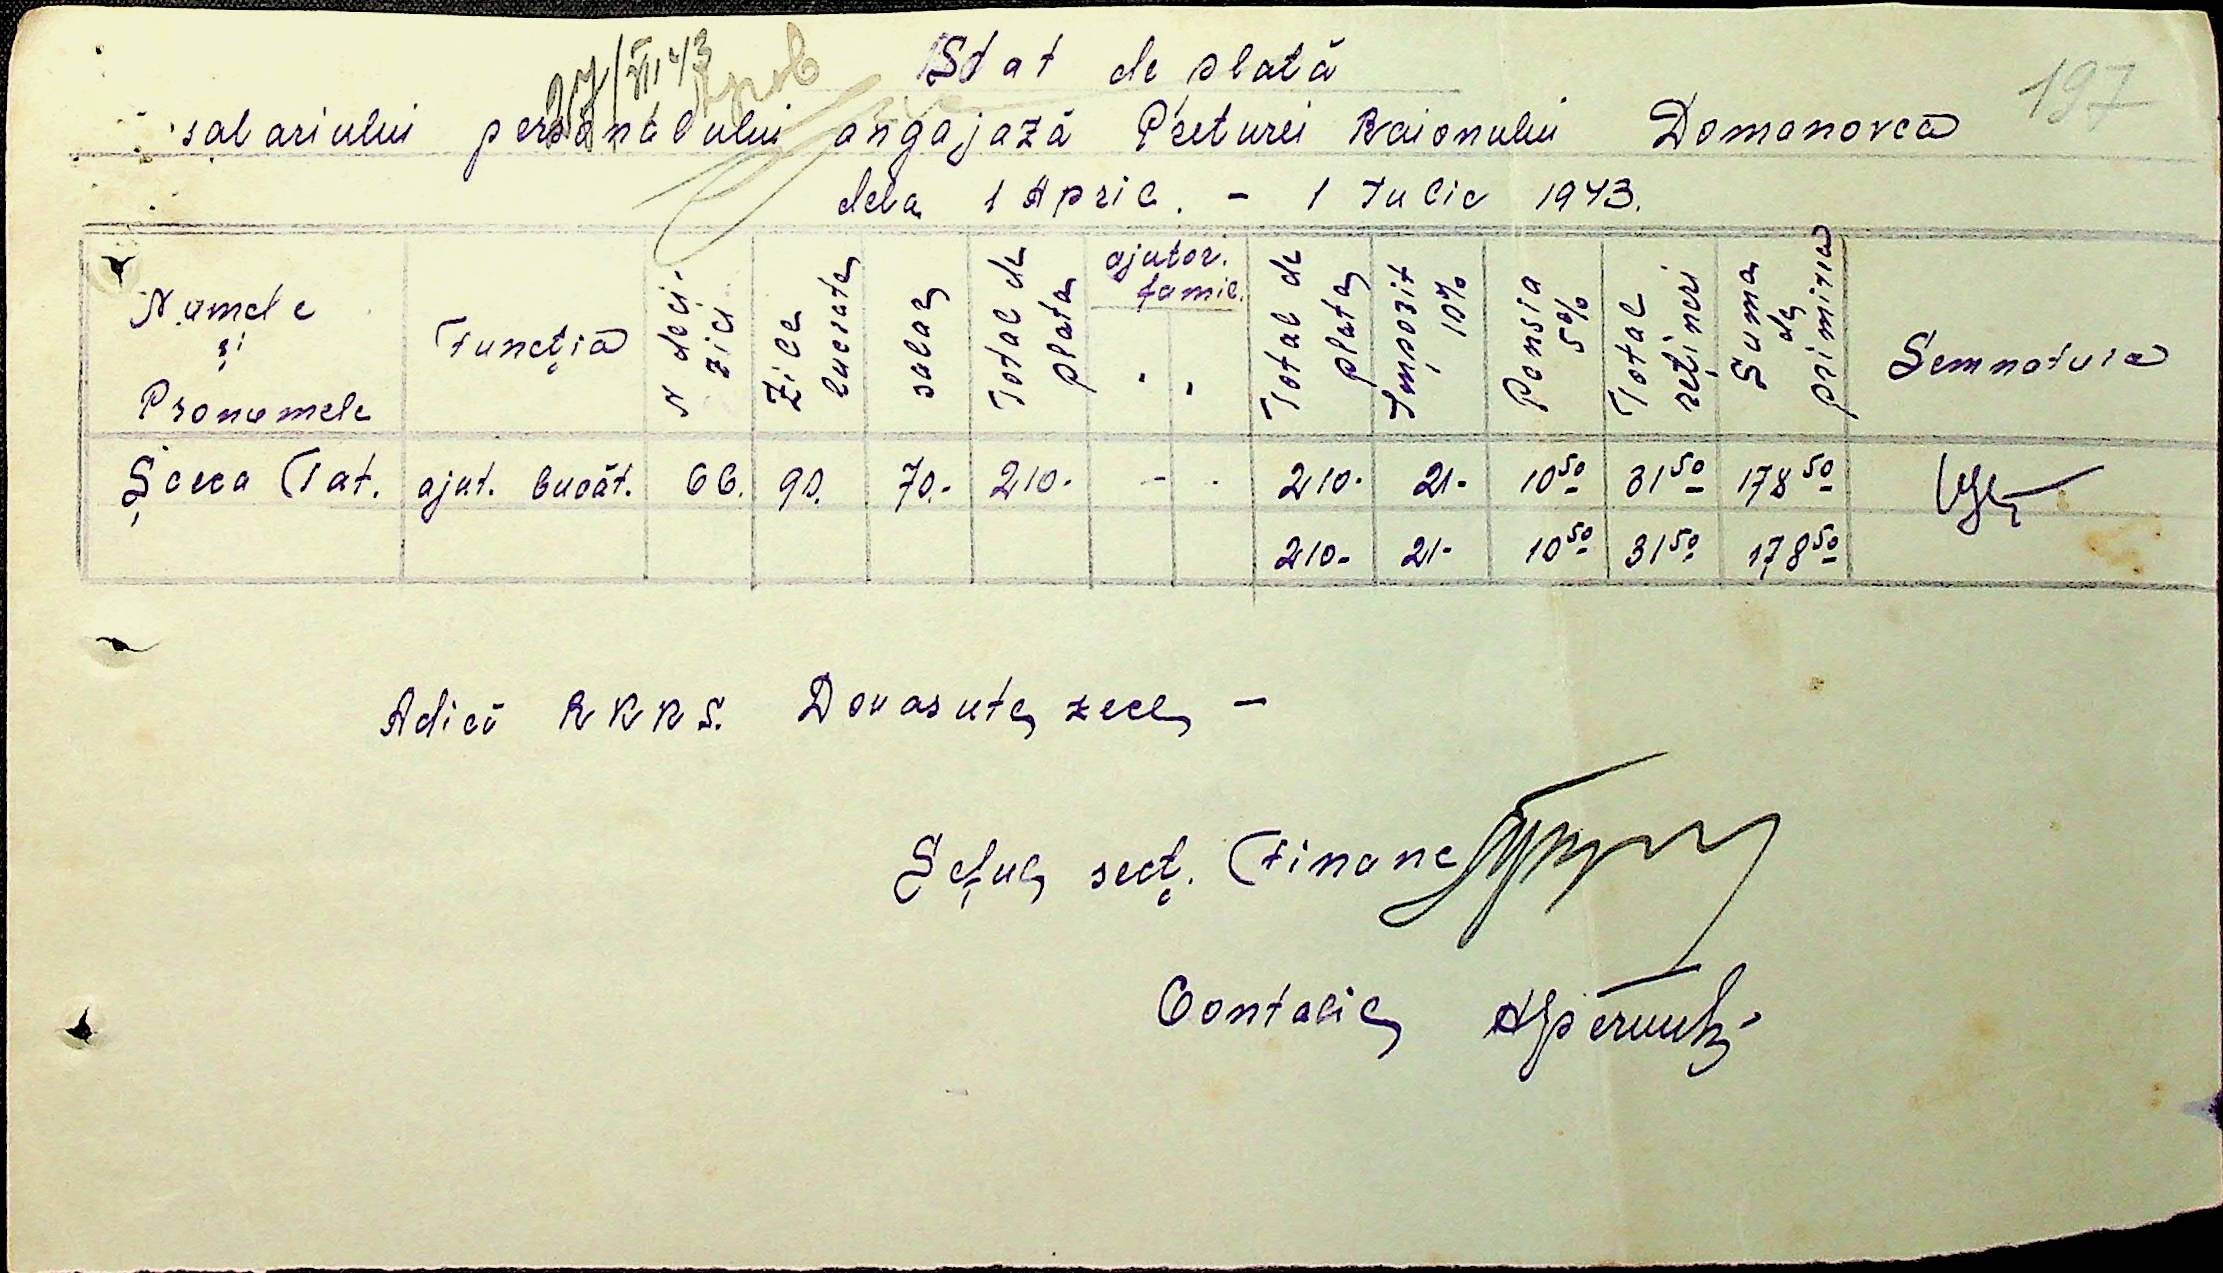 27/VII 43
197
Stat de plată
salariului personalului angajază Preturei Raionului Domanovca
dela 1 April. - 1 Iulie 1943.
Numele și Pronumele | Funcția | N deci-zici | Zile lucrate | salar | Total de plata | ajutor. famil. | Total de plata | Impozit 10% | Pensia 5% | Total rețineri | Suma de primire | Semnatura
Șcera Tat. | ajut. bucăt. | 66. | 90. | 70.- | 210.- | - | - | 210.- | 21- | 10 50 | 31 50 | 178 50
210.- | 21- | 10 50 | 31 50 | 178 50
Adică RKKS. Douasute zece -
Șeful secț. Financ
Contabil